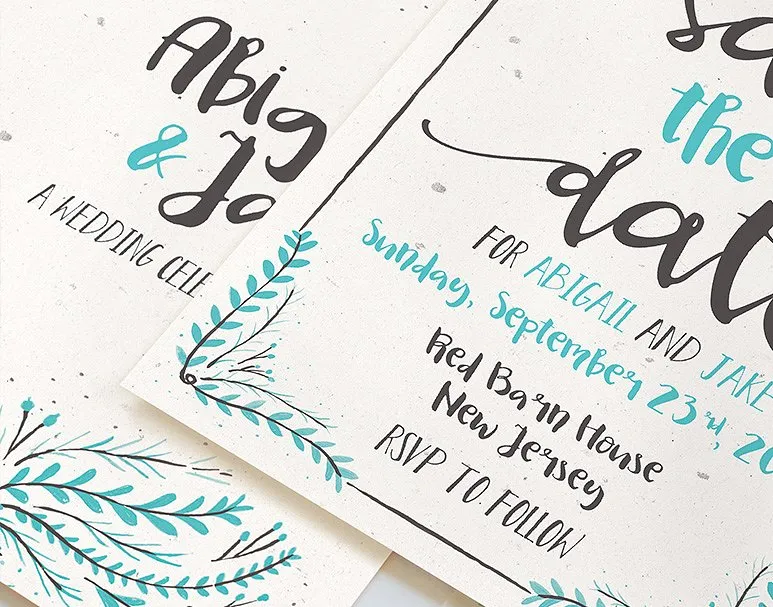 Abig
& Ja
A WEDDING CELE
Sa
the
dat
FOR ABIGAIL AND JAKE
Sunday, September 23rd, 20
Red Barn House
New Jersey
RSVP TO FOLLOW